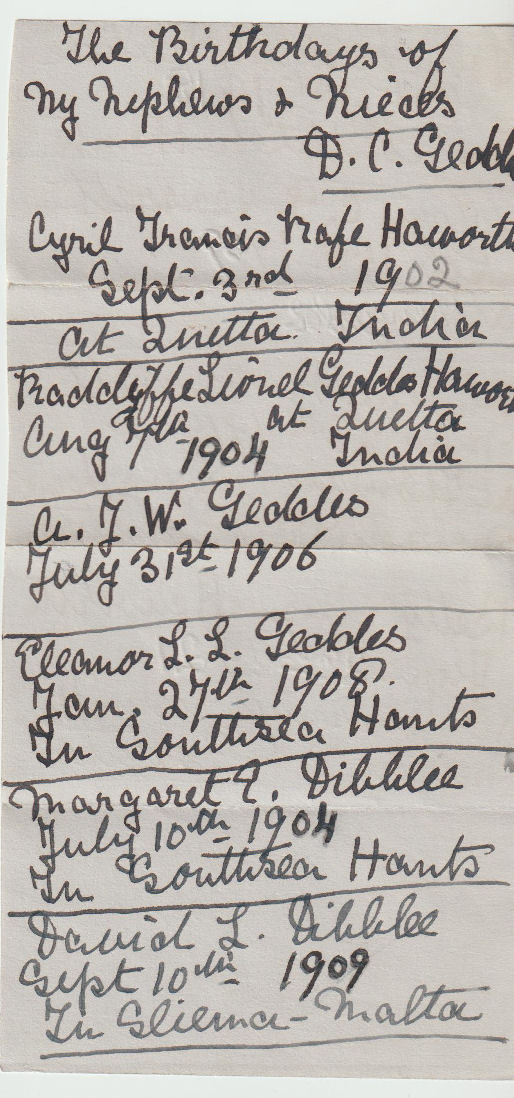 The Birthdays of
My Nephews & Nieces
D. C. Gedd
Cyril Francis Rafe Haworth
Sept. 3rd 1902
at Quetta. India
Radclyffe Lionel Geddes Hawor
Aug 7th 1904 at Quetta
India
A. J. W. Geddes
July 31st 1906
Eleanor L. L. Geddes
Jan. 27th 1908.
In Southsea Hants
Margaret E. Dibblee
July 10th 1904
In Southsea Hants
David L. Dibblee
Sept 10th 1909
In Sliema - Malta